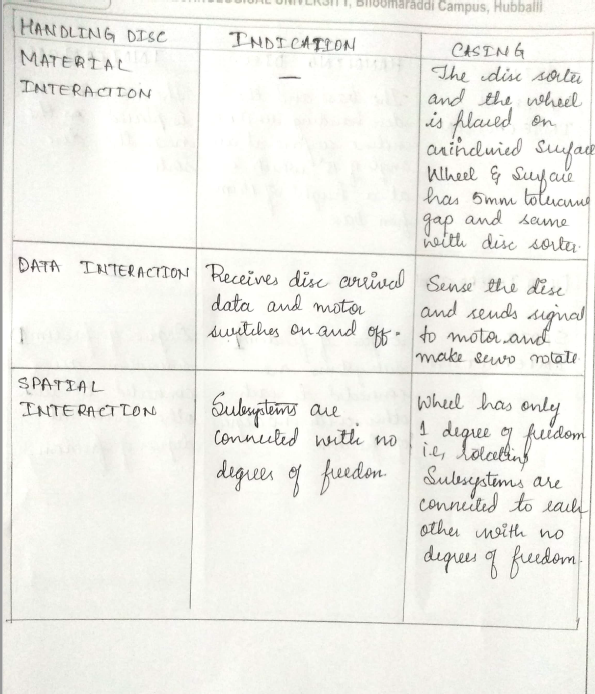 UNIVERSITY, Bhoomaraddi Campus, Hubballi
HANDLING DISC
MATERIAL
INTERACTION
INDICATION
—
CASING
The disc sorter
and the wheel
is placed on
surface
Wheel & Surface
has 5mm tolerance
gap and same
with disc sorter.
DATA INTERACTION
Receives disc arrival
data and motor
switches on and off.
Sense the disc
and sends signal
to motor and
make servo rotate
SPATIAL
INTERACTION
Subsystems are
connected with no
degrees of freedom.
Wheel has only
1 degree of freedom
i.e, rotating
Subsystems are
connected to each
other with no
degrees of freedom.